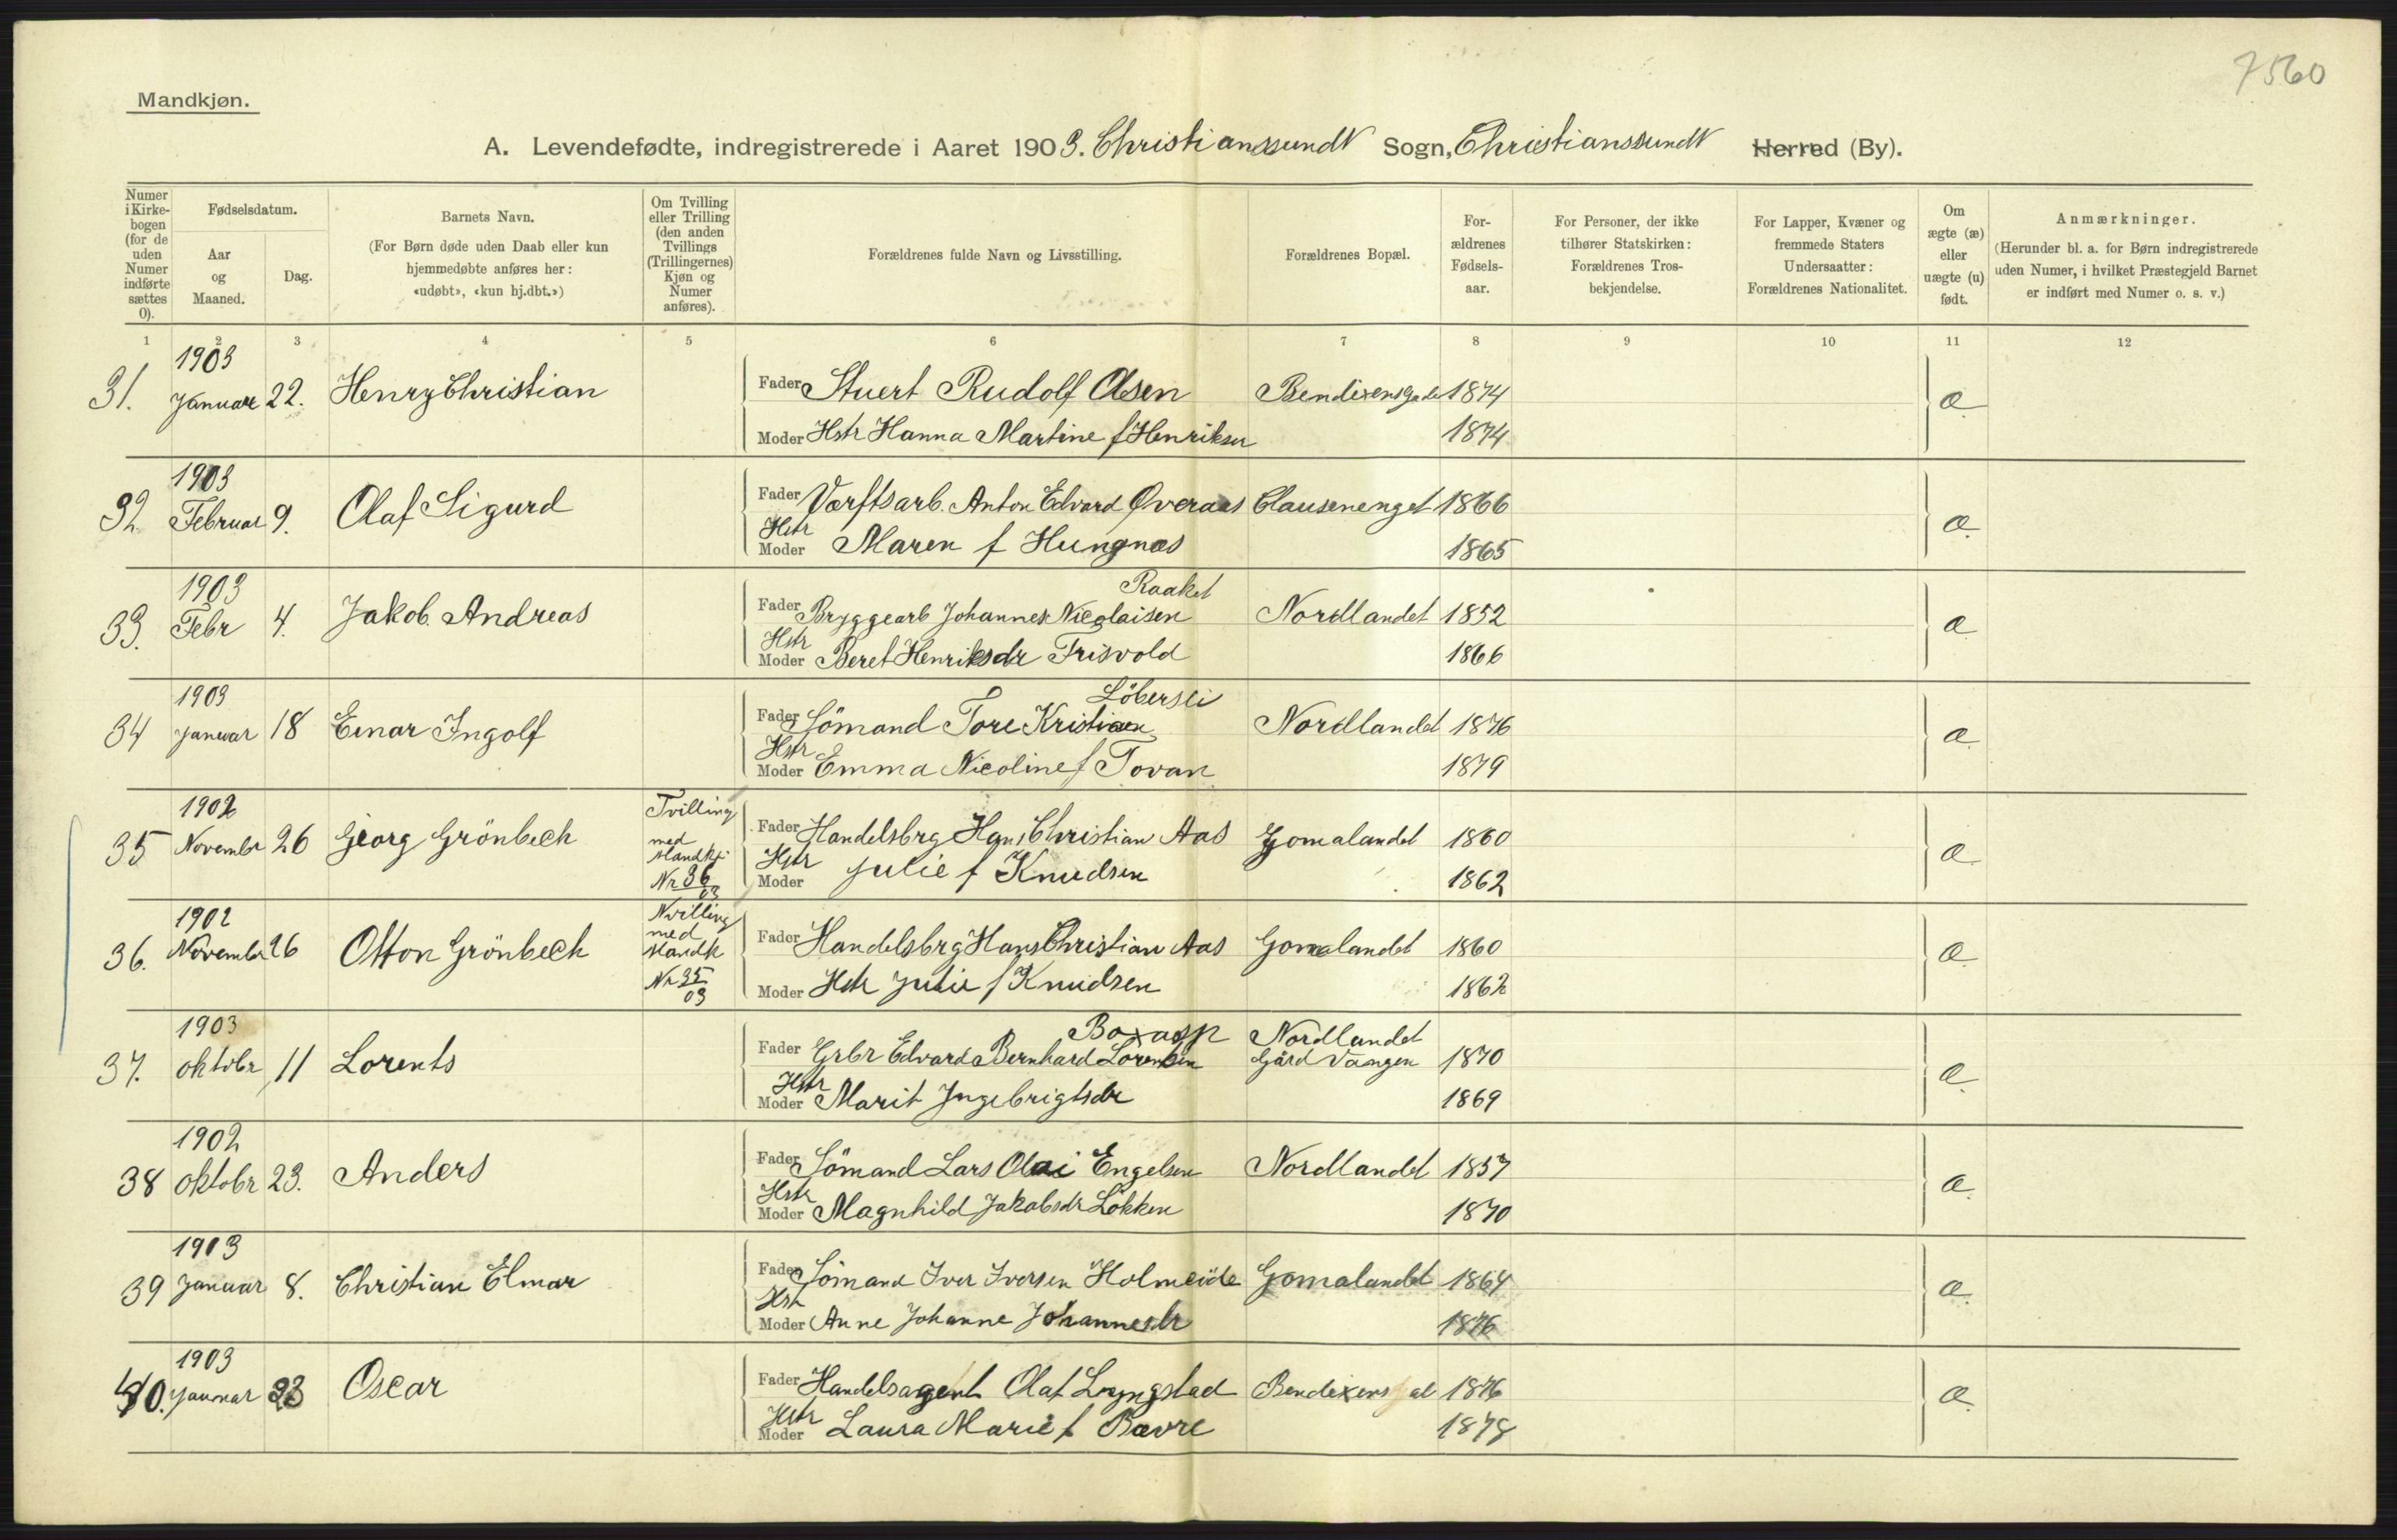 7560
Mandkjøn.
A. Levendefødte, indregistrerede i Aaret 1903. Christianssundt Sogn, Christianssundt Herred (By).
Numer i Kirkebogen (for de uden Numer indførte sættes 0).
Fødselsdatum.
Aar og Maaned.
Dag.
Barnets Navn.
(For Børn døde uden Daab eller kun hjemmedøbte anføres her: «udøbt», «kun hj.dbt.»)
Om Tvilling eller Trilling (den anden Tvillings (Trillingernes) Kjøn og Numer anføres).
Forældrenes fulde Navn og Livsstilling.
Forældrenes Bopæl.
Forældrenes Fødselsaar.
For Personer, der ikke tilhører Statskirken: Forældrenes Trosbekjendelse.
For Lapper, Kvæner og fremmede Staters Undersaatter: Forældrenes Nationalitet.
Om ægte (æ) eller uægte (u) født.
Anmærkninger.
(Herunder bl. a. for Børn indregistrerede uden Numer, i hvilket Præstegjeld Barnet er indført med Numer o. s. v.)
1 2 3 4 5 6 7 8 9 10 11 12
1903
31. Januar 22. Henry Christian Fader Stuert Rudolf Olsen Bendixensgade 1874 æ
Moder Hstr Hanna Martine f Henriksen 1874
1903
32 Februar 9. Olaf Sigurd Fader Værftsarb. Anton Edvard Øveraas Clausenenget 1866 æ.
Hstr
Moder Maren f Hungnæs 1865
1903 Raaket
33. Febr 4. Jakob Andreas Fader Bryggearb Johannes Nicolaisen Nordlandet 1852 æ
Hstr
Moder Beret Henriksdr Frisvold 1866
1903 Löbersli
34 Januar 18 Einar Ingolf Fader Sömand Tore Kristian Nordlandet 1876 æ
Hstr
Moder Emma Nicoline f Tovan 1879
1902
35 Novembr 26 Georg Grönbech Tvilling med Mandkj Nr 36/03 Fader Handelsbrg Hans Christian Aas Gomalandet 1860 æ
Hstr
Moder Julie f Knudsen 1862
1902
36. Novembr 26 Otton Grönbech Tvilling med Mandk Nr 35/03 Fader Handelsbrg Hans Christian Aas Gomalandet 1860 æ
Moder Hstr Julie f Knudsen 1862
1903 Boxasp Nordlandet
37. Oktobr 11 Lorents Fader Grbr Edvard Bernhard Lorentsen Gård Vangen 1870 æ
Hstr
Moder Marit Ingebrigtsdr 1869
1902
38 Oktobr 23. Anders Fader Sömand Lars Olai Engelsen Nordlandet 1857 æ
Hstr
Moder Magnhild Jakobsdr Lökken 1870
1903
39 Januar 8. Christian Elmar Fader Sömand Iver Iversen Holmeide Gomalandet 1864 æ
Hstr
Moder Anne Johanne Johannesdr 1876
1903
40. Januar 23 Oscar Fader Handelsagent Olaf Lyngstad 1876 æ
Hstr
Moder Laura Marie f Bævre 1878